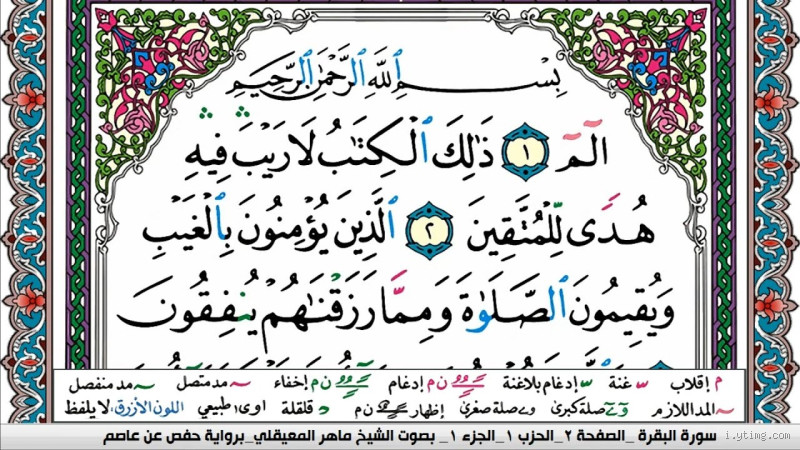 بِسْمِ ٱللَّهِ ٱلرَّحْمَٰنِ ٱلرَّحِيمِ
الٓمٓ ١ ذَٰلِكَ ٱلْكِتَٰبُ لَا رَيْبَ ۛ فِيهِ ۛ
هُدًى لِّلْمُتَّقِينَ ٢ ٱلَّذِينَ يُؤْمِنُونَ بِٱلْغَيْبِ
وَيُقِيمُونَ ٱلصَّلَوٰةَ وَمِمَّا رَزَقْنَٰهُمْ يُنفِقُونَ
م إقلاب غنة إدغام بلاغنة ن م إدغام ن م إخفاء مد متصل مد منفصل
المد اللازم صلة كبرى صلة صغرى إظهار ن م قلقلة اوى ا طبيعي اللون الأزرق لا يلفظ
سورة البقرة _الصفحة ٢_الحزب ١_الجزء ١_ بصوت الشيخ ماهر المعيقلي_برواية حفص عن عاصم
i.ytimg.com